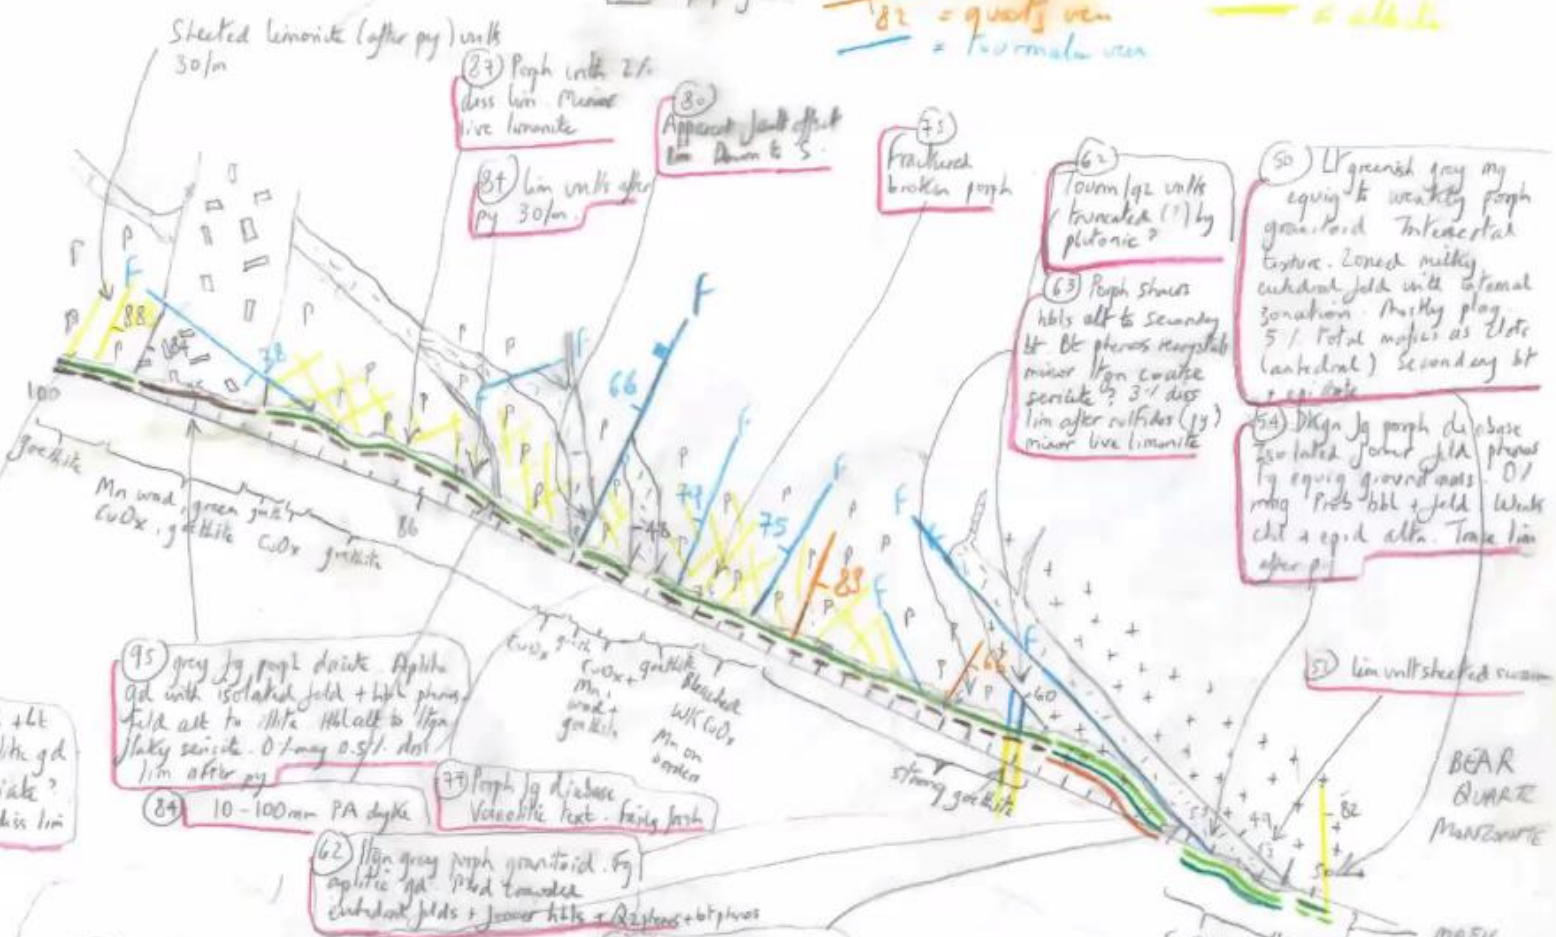 82 = quartz ven
= tourmaln ven
Sheeted limonite (after py) vnlts
30/m
87 Porph with 2%
diss lim. Minor
live limonite
84 lim vnlts after
py 30/m.
80
Apparent fault offset
Down to S.
75
Fractured
broken porph
62
Tourm/qz vnlts
truncated (?) by
plutonic?
63 Porph shows
hbls alt to secondary
bt Bt phenos recrystals
minor ltgn coarse
sericite? 3% diss
lim after sulfides (py)
minor live limonite
50 Lt greenish grey mg
equig to weakly porph
granitoid Intersertal
texture. Zoned milky
euhedral feld with internal
zonation. Mostly plag
5% Total mafics as clots
(anhedral) Secondary bt
+ epidote
54 Dkgn fg porph diabase
Isolated former feld phenos
fg equig groundmass. 0%
mag Prob hbl + feld Weak
chl + epid altn. Trace lim
after p
51 lim vnlt sheeted
BEAR
QUARTZ
MONZONITE
F
88
84
38
F
66
F
F
79
F
75
F
83
F
F
F
60
48
53
49
82
50
100
86
goethite
Mn wad, green goeth
CuOx, goethite
CuOx goethite
CuOx goeth
CuOx + goethite
Mn,
wad +
goethite
Bleached
WK CuOx
Mn on
borders
strong goethite
95 grey fg porph dacite Aplitic
gd with isolated feld + hbl phenos
feld alt to illite Hbl alt to ltgn
flaky sericite. 0% mag 0.5% diss
lim after py
84 10-100mm PA dyke
77 Porph fg diabase
Variolitic text. Fairly fresh
62 ltgn grey porph granitoid. Fg
aplitic gd. Mod crowded
euhedral felds + fewer hbls + Qz phenos + bt phenos
+bt
gd
diss lim